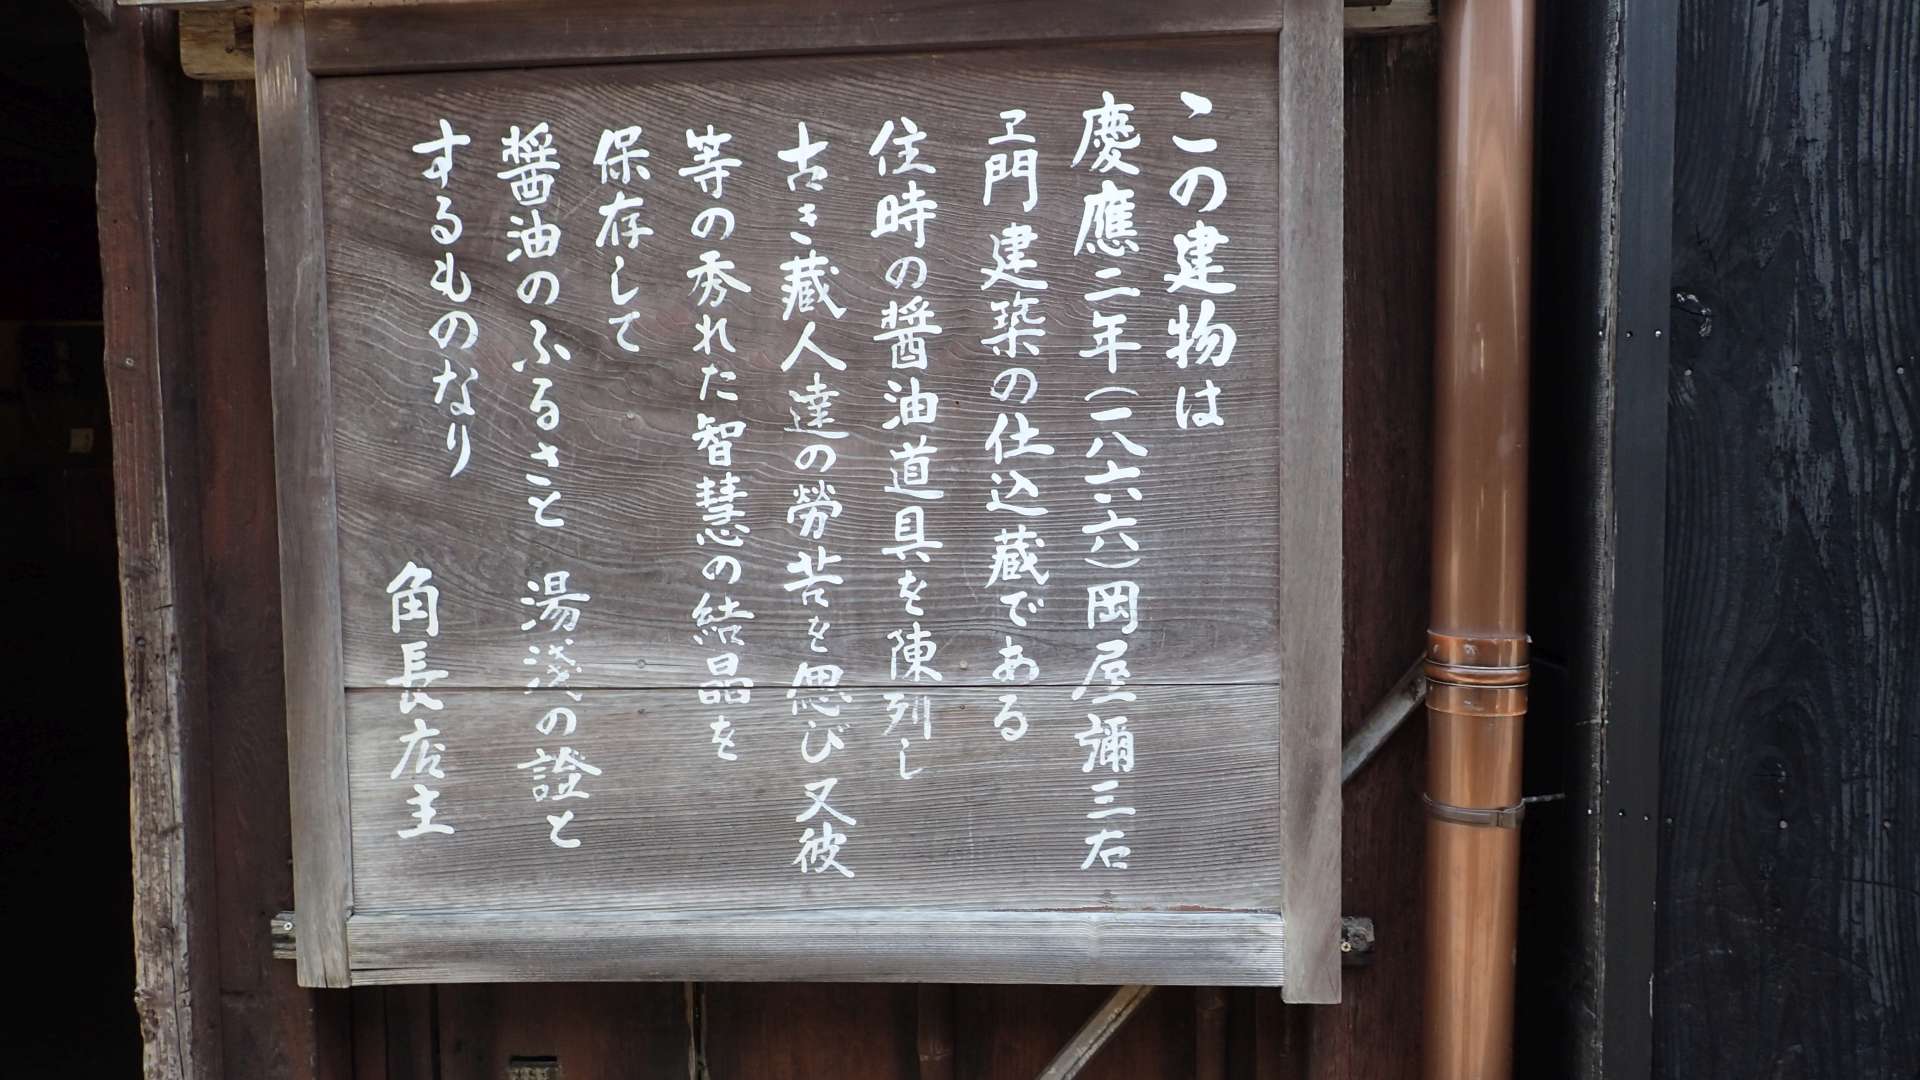 この建物は
慶應二年（一八六六）岡屋彌三右
ヱ門建築の仕込蔵である
住時の醤油道具を陳列し
古き蔵人達の勞苦を偲び又彼
等の秀れた智慧の結晶を
保存して
醤油のふるさと 湯淺の證と
するものなり
角長店主